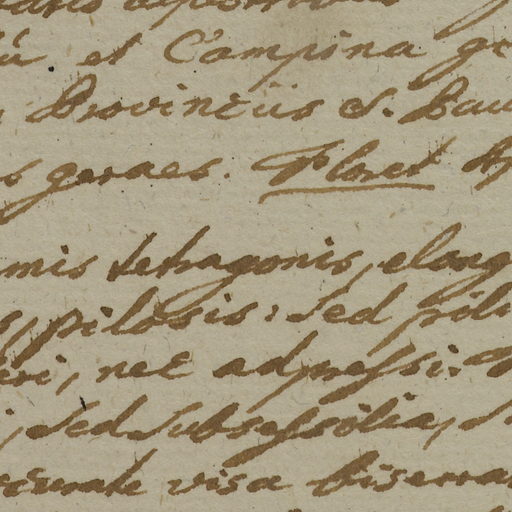 et Campina
Provinciis S. Pau
geraes. Floret
mis tetragonis, elong
pilosis: sed pili
nec adpressi.
sed subsessilia,
visa biserra